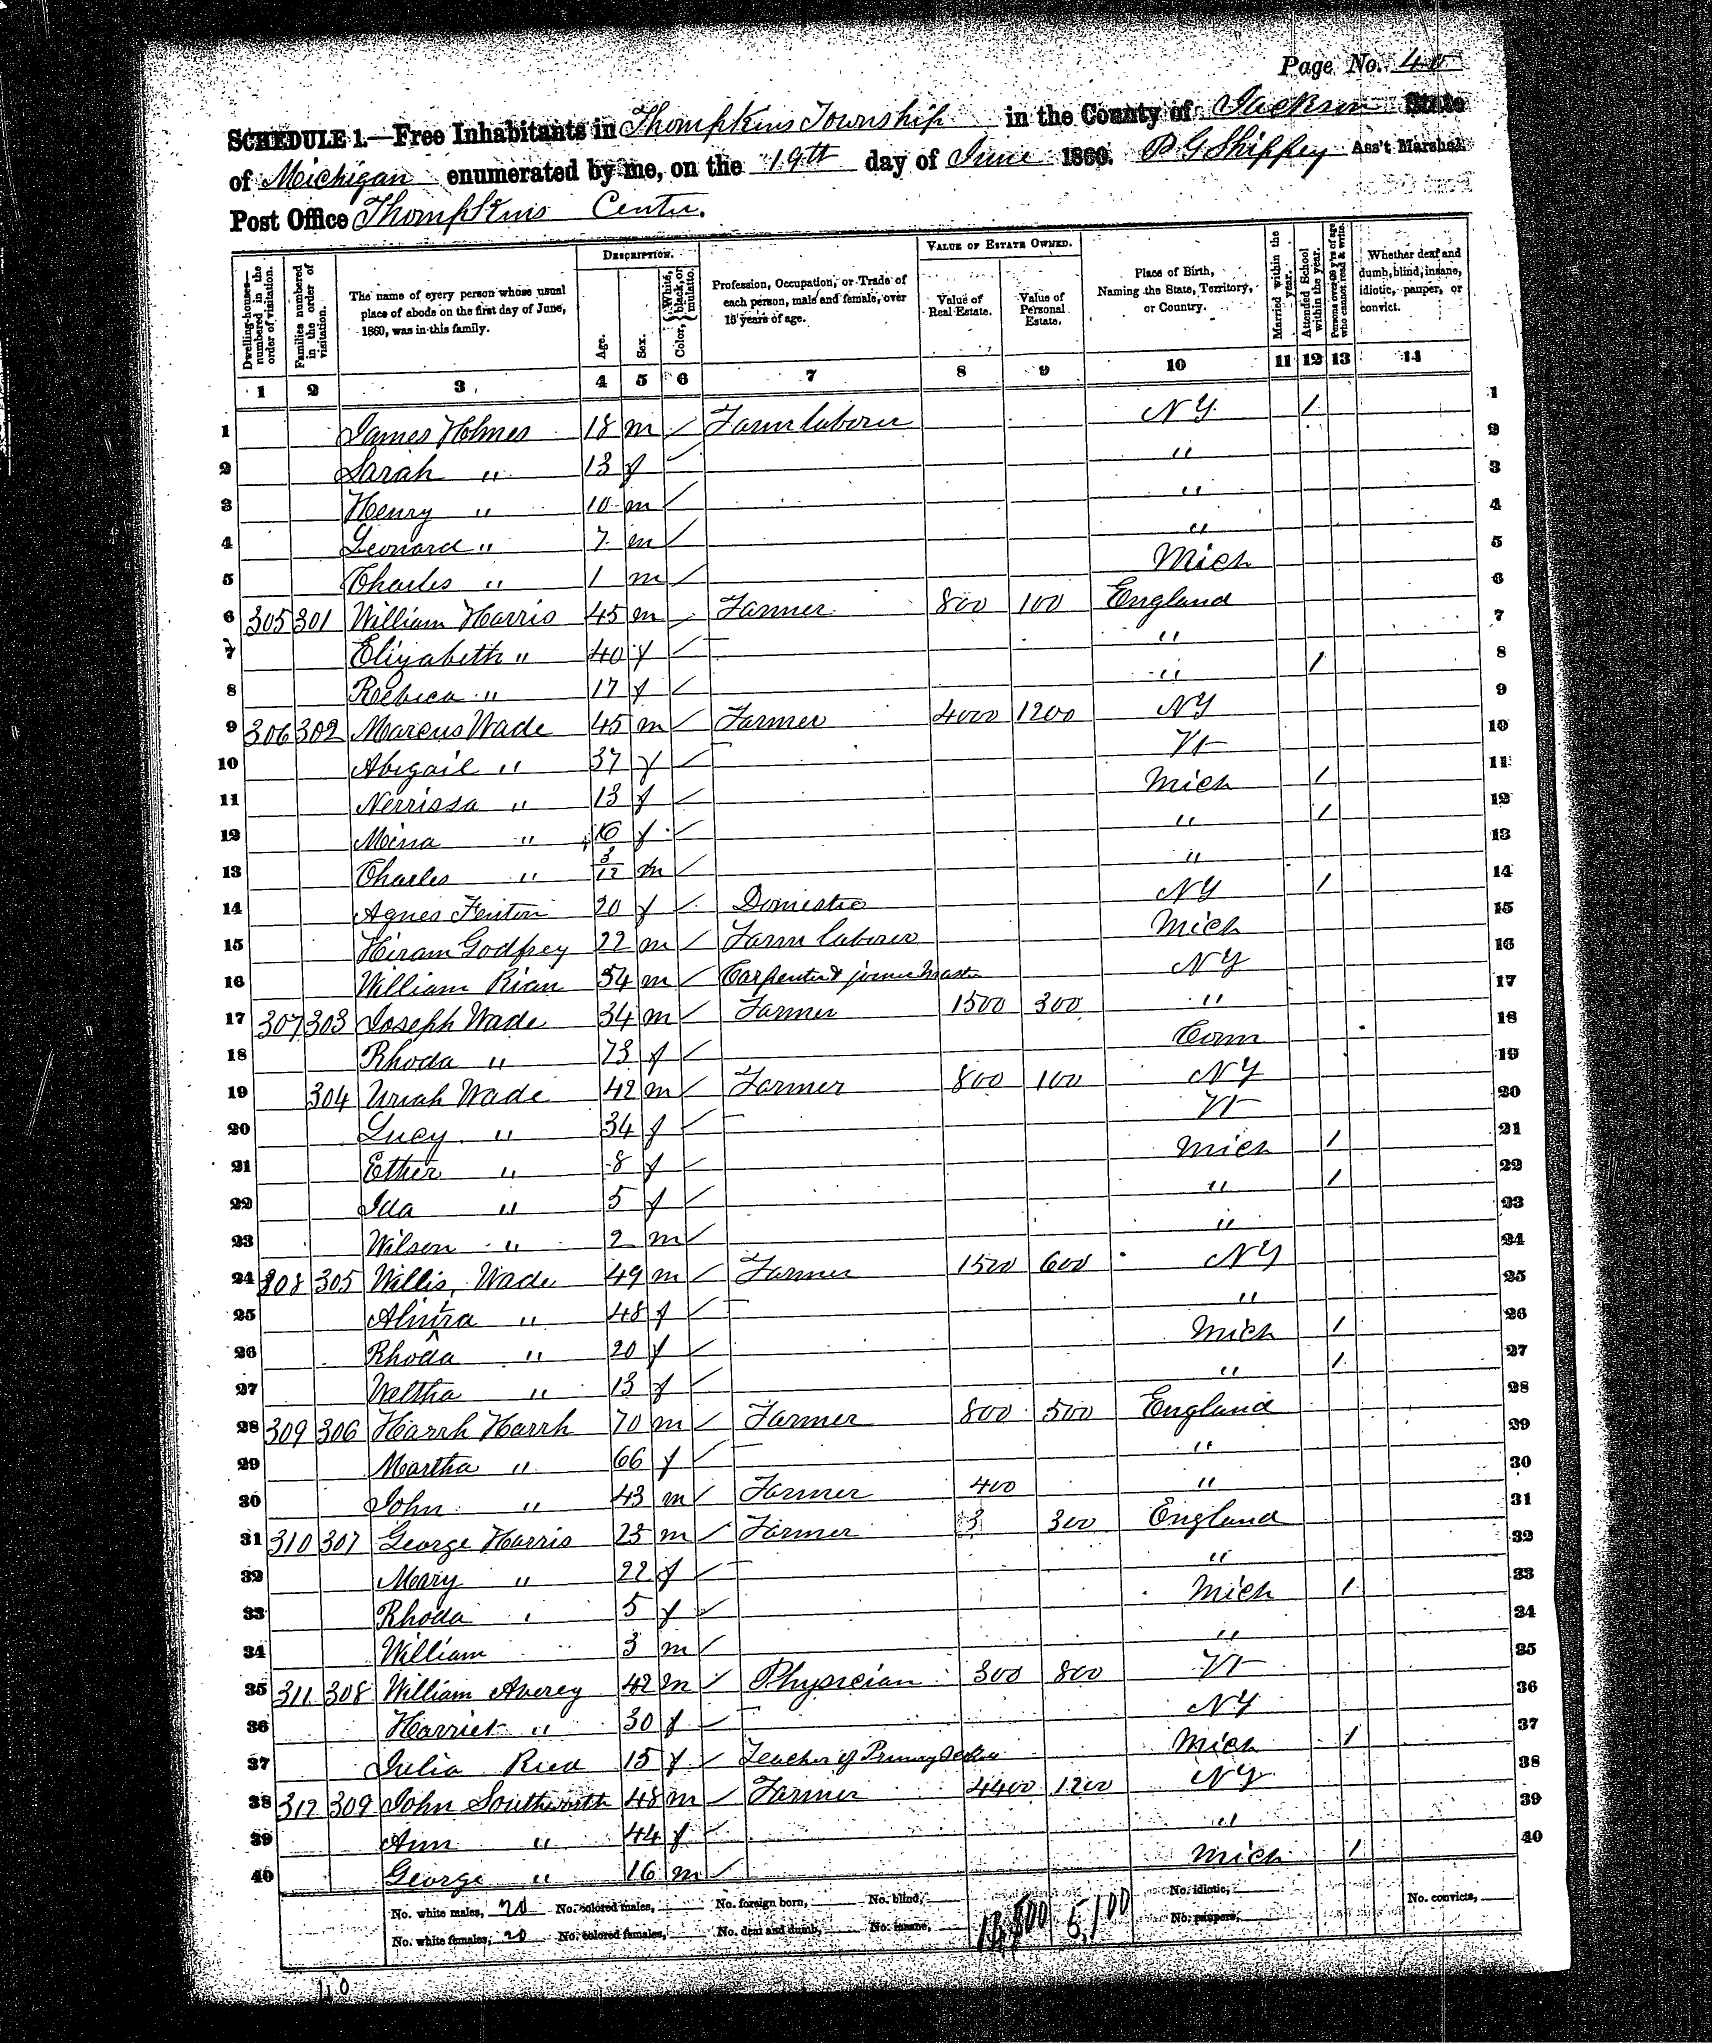 Page No. 40
SCHEDULE 1.—Free Inhabitants in Thompkins Township in the County of Jackson State
of Michigan enumerated by me, on the 19th day of June 1860. P G Shippey Ass't Marshal.
Post Office Thompkins Center.
Dwelling-houses—numbered in the order of visitation.
Families numbered in the order of visitation.
The name of every person whose usual place of abode on the first day of June, 1860, was in this family.
DESCRIPTION.
Age.
Sex.
Color, {White, black, or mulatto.
Profession, Occupation, or Trade of each person, male and female, over 15 years of age.
VALUE OF ESTATE OWNED.
Value of Real Estate.
Value of Personal Estate.
Place of Birth, Naming the State, Territory, or Country.
Married within the year.
Attended School within the year.
Persons over 20 y'rs of age who cannot read & write.
Whether deaf and dumb, blind, insane, idiotic, pauper, or convict.
1 2 3 4 5 6 7 8 9 10 11 12 13 14
1 James Holmes 18 m ✓ Farm laborer NY / 1
2 Sarah " 13 f ✓ " 2
3 Henry " 10 m ✓ " 3
4 Leonard " 7 m ✓ " 4
5 Charles " 1 m ✓ Mich 5
6 305 301 William Harris 45 m ✓ Farmer 800 100 England 6
7 Elizabeth " 40 f ✓ " 7
8 Rebica " 17 f ✓ " / 8
9 306 302 Marcus Wade 45 m ✓ Farmer 4000 1200 NY 9
10 Abigail " 37 f ✓ Vt 10
11 Nerrissa " 13 f ✓ Mich / 11
12 Mina " f ✓ " / 12
13 Charles " 3/12 m ✓ " 13
14 Agnes Fenton 20 f ✓ Domestic NY / 14
15 Hiram Godfrey 22 m ✓ Farm laborer Mich 15
16 William Rian 54 m ✓ Carpenter & joiner Master NY 16
17 307 303 Joseph Wade 34 m ✓ Farmer 1500 300 " 17
18 Rhoda " 73 f ✓ Conn 18
19 304 Uriah Wade 42 m ✓ Farmer 800 100 NY 19
20 Lucy " 34 f ✓ Vt 20
21 Ether " 8 f ✓ Mich / 21
22 Ida " 5 f ✓ " / 22
23 Wilson " 2 m ✓ " 23
24 308 305 Willis Wade 49 m ✓ Farmer 1500 600 NY 24
25 Almira " 48 f ✓ " 25
26 Rhoda " 20 f ✓ Mich / 26
27 Weltha " 13 f ✓ " / 27
28 309 306 Harrh Harrh 70 m ✓ Farmer 800 500 England 28
29 Martha " 66 f ✓ " 29
30 John " 43 m ✓ Farmer 400 " 30
31 310 307 George Harris 25 m ✓ Farmer 3 300 England 31
32 Mary " 22 f ✓ " 32
33 Rhoda " 5 f ✓ Mich / 33
34 William " 3 m ✓ " 34
35 311 308 William Averey 42 m ✓ Physician 300 800 Vt 35
36 Harriet " 30 f ✓ NY 36
37 Julia Ried 15 f ✓ Teacher of Primary Mich / 37
38 312 309 John Southworth 48 m ✓ Farmer 4400 1200 NY 38
39 Ann " 44 f ✓ " 39
40 George " 16 m ✓ Mich / 40
No. white males, 20 No. colored males, No. foreign born, No. blind, No. idiotic, No. convicts,
No. white females, 20 No. colored females, No. deaf and dumb, No. insane, 5,100 No. paupers,
40